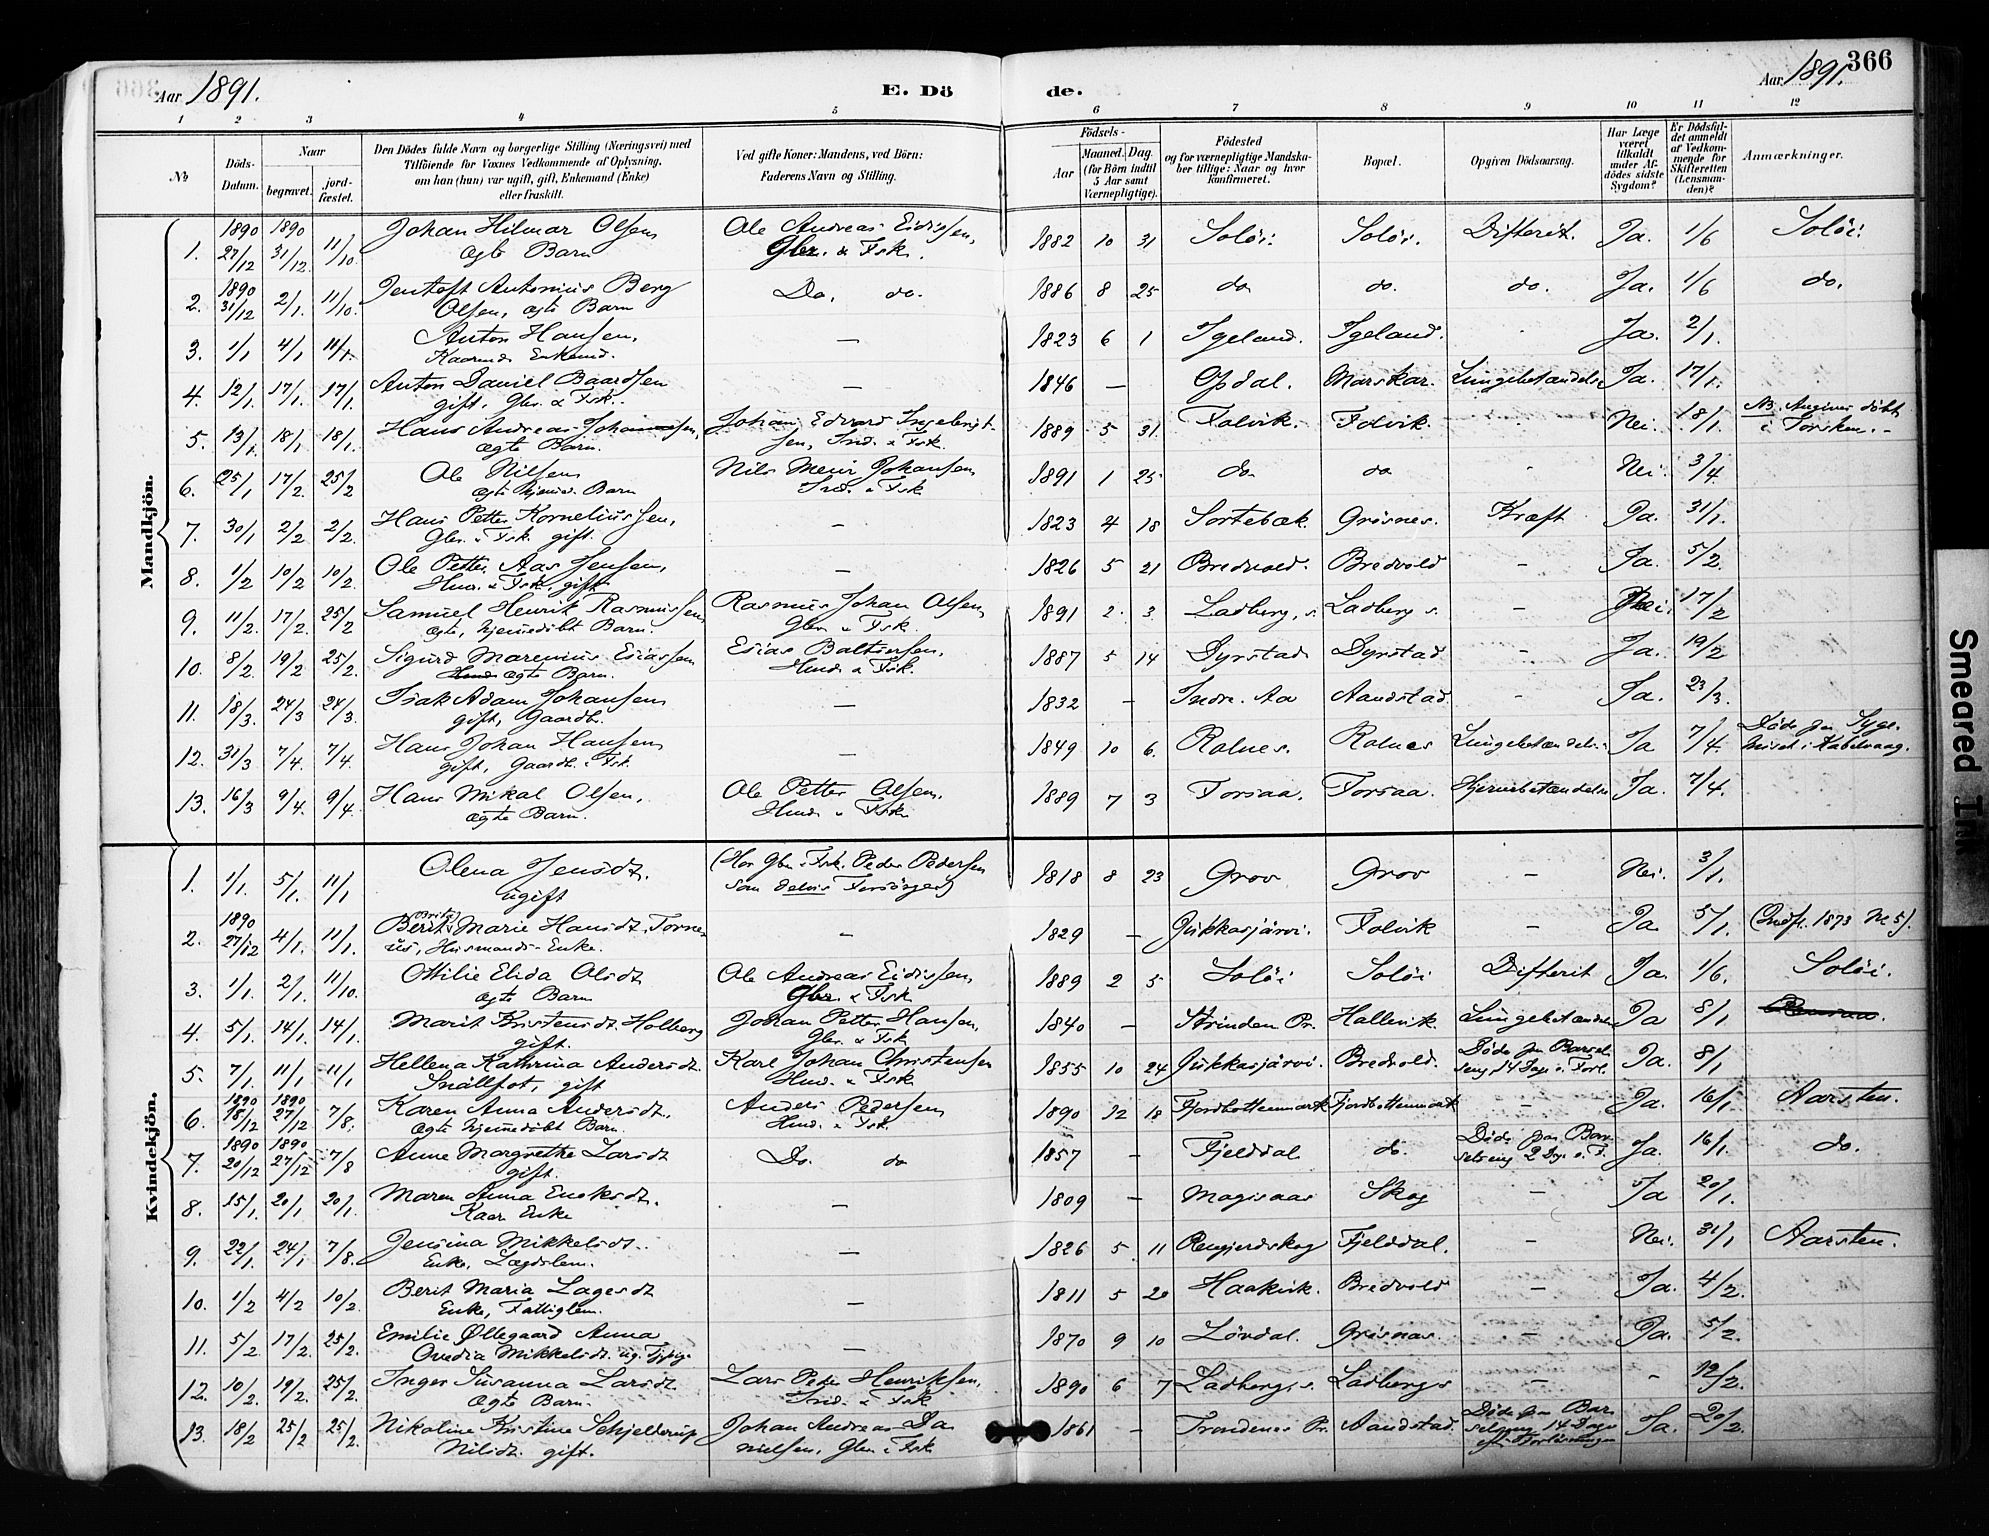 Aar 1891. E. Dö de. Aar 1891. 366
1 2 3 4 5 6 7 8 9 10 11 12
№ Döds-Datum. Naar begravet. jord-fæstet. Den Dödes fulde Navn og borgerlige Stilling (Næringsvei) med Tilföiende for Voxnes Vedkommende af Oplysning, om han (hun) var ugift, gift, Enkemand (Enke) eller fraskilt. Ved gifte Koner: Mandens, ved Börn: Faderens Navn og Stilling. Födsels- Aar Maaned. Dag. (for Börn indtil 5 Aar samt Værnepligtige). Födested og for værnepligtige Mandskaber tillige: Naar og hvor konfirmeret. Bopæl. Opgiven Dödsaarsag. Har Læge været tilkaldt under Afdödes sidste Sygdom? Er Dödsfaldet anmeldt af Vedkommende for Skifteretten (Lensmanden)? Anmærkninger.
Mandkjön.
1. 1890 27/12 1890 31/12. 11/10. Johan Hilmar Olsen ægte Barn Ole Andreas Eidissen, Gbr. & Fsk. 1882 10 31 Soløi. Soløi. Difterit. Ja. 1/6 Soløi.
2. 1890 31/12 2/1. 11/10. Jentoft Antonius Berg Olsen, ægte Barn Do. do. 1886 8 25 do do. do. Ja. 1/6 do.
3. 1/1 4/1 11/1. Anton Hansen, Kaarmd. Enkemd. — 1823 6 1 Igeland. Igeland. Ja. 2/1.
4. 12/1. 17/1. 17/1. Anton Daniel Baardsen gift, Gbr. & Fsk. — 1846 — Opdal. Marskar. Lungebetændelse Ja. 17/1.
5. 13/1. 18/1. 18/1. Hans Andreas Johannessen, ægte Barn. Johan Edvard Ingebrigtsen, Ind. & Fsk. 1889 5 31. Folvik. Folvik. Nei. 18/1. NB. Angives døbt i Torsken.
6. 25/1 17/2. 25/2 Ole Nilsen ægte hjemmed. Barn Nils Meier Johansen Ind. & Fsk. 1891 1 25 do do Nei. 3/4
7. 30/1 2/2 2/2. Hans Petter Korneliussen, Gbr. & Fsk. gift. — 1823 4 18 Sortebæk. Grøsnes. Kræft Ja. 31/1.
8. 1/2 10/2 10/2. Ole Petter Aas Jensen, Hmd. & Fsk. gift — 1826 5 21 Bredvold. Bredvold — Ja. 5/2.
9. 11/2. 17/2. 25/2 Samuel Henrik Rasmussen ægte, hjemmedøbt Barn. Rasmus Johan Olsen Gbr. & Fsk. 1891 2. 3 Ladberg, s. Ladberg s. — Nei. 17/2
10. 8/2. 19/2 25/2. Sigurd Marenius Esiassen ægte Barn. Esias Baltsersen, Hmd. & Fsk. 1887 5 14 Dyrstad Dyrstad — Ja. 19/2
11. 18/3. 24/3 24/3. Isak Adam Johansen gift, Gaardb. — 1832 — Indre. Aa Aandstad. - Ja. 23/3.
12. 31/3 7/4. 7/4. Hans Johan Hansen gift, Gaardb. & Fsk. — 1849 10 6. Rolnes. Rolnes Lungebetændelse Ja 7/4. Døde paa Sygehuset i Kabelvaag.
13. 16/3 9/4. 9/4. Hans Mikal Olsen, ægte Barn. Ole Petter Olsen, Hmd. & Fsk. 1889 7 3 Forsaa. Forsaa. Hjernebetændelse Ja. 7/4.
Kvindekjön.
1. 1/1. 5/1. 11/1 Olena Jensdt. ugift (Hos Gbr. & Fsk. Peder Pedersen som delvis Forsørger) 1818 8 23 Grov Grov — Nei. 3/1.
2. 1890 27/12 4/1. 11/1. Berit (Brita) Marie Hansdt. Torneus, Husmands-Enke. — 1829 — Jukkasjärvi. Folvik — Ja 5/1. (Indfl. 1873 № 5).
3. 1/1. 2/1. 11/10 Ottilie Elida Olsdt ægte Barn Ole Andreas Eidissen, Gbr. & Fsk 1889 2 5 Soløi Soløi Difterit Ja. 1/6 Soløi.
4. 5/1. 14/1. 14/1. Marit Kristensdt. Holberg gift. Johan Petter Hansen, Gbr. & Fsk 1840 — Strinden Pr. Hallevik. Lungebetændelse Ja 8/1.
5. 7/1. 11/1. 11/1 Hellena Kathrina Andersdt. Snällfot, gift Karl Johan Christensen Hmd. & Fsk 1855 10 24 Jukkasjärvi. Bredvold. Døde paa Barselseng 14 Dage e. Forl. Ja. 8/1
6. 1890 18/12 1890 27/12 7/8. Karen Anna Andersdt. ægte hjemmedøbt Barn. Anders Pedersen Hmd. & Fsk. 1890 12 18 Fjordbottenmark Fjordbottenmark — Ja. 16/1. Aarsten.
7. 1890 20/12 1890 27/12 7/8 Anne Margrethe Larsdt gift. Do. do 1857 — Fjelddal do. Døde paa Barselseng 2 Dg. e. F. Ja. 16/1. do.
8. 15/1. 20/1 20/1. Maren Anna Enoksdt. Kaar Enke — 1809 — Magisaas Skog — Ja 20/1.
9. 22/1. 24/1 7/8. Jensina Mikkelsdt. Enke, Lægdslem. — 1826 5 11 Rengjerdskog Fjelddal. — Nei. 31/1 Aarsten.
10. 1/2 4/2 10/2. Berit Maria Lagesdt Enke, Fattiglem. — 1811 5 20 Haakvik. Bredvold — Ja. 4/2.
11. 5/2 17/2. 25/2. Emilie Øllegaard Anna Ovedia Mikkelsdt. ug. Tjpige — 1870 9 10 Lövdal. Grøsnas. — Ja. 5/2.
12. 10/2. 19/2. 25/2. Inger Susanna Larsdt. ægte Barn. Lars Peder Henriksen, Ind. & Fsk 1890 6 7 Ladberg, s. Ladberg s — - 12/2.
13. 18/2 25/2 25/2. Nikoline Kristine Schjelderup Nilsdt. gift. Johan Andreas Danielsen, Gbr. & Fsk 1861 — Trondenes Pr. Aandstad. Døde paa Barselseng 14 Dage eft. Forløsningen Ja. 20/2.
Smeared Ink